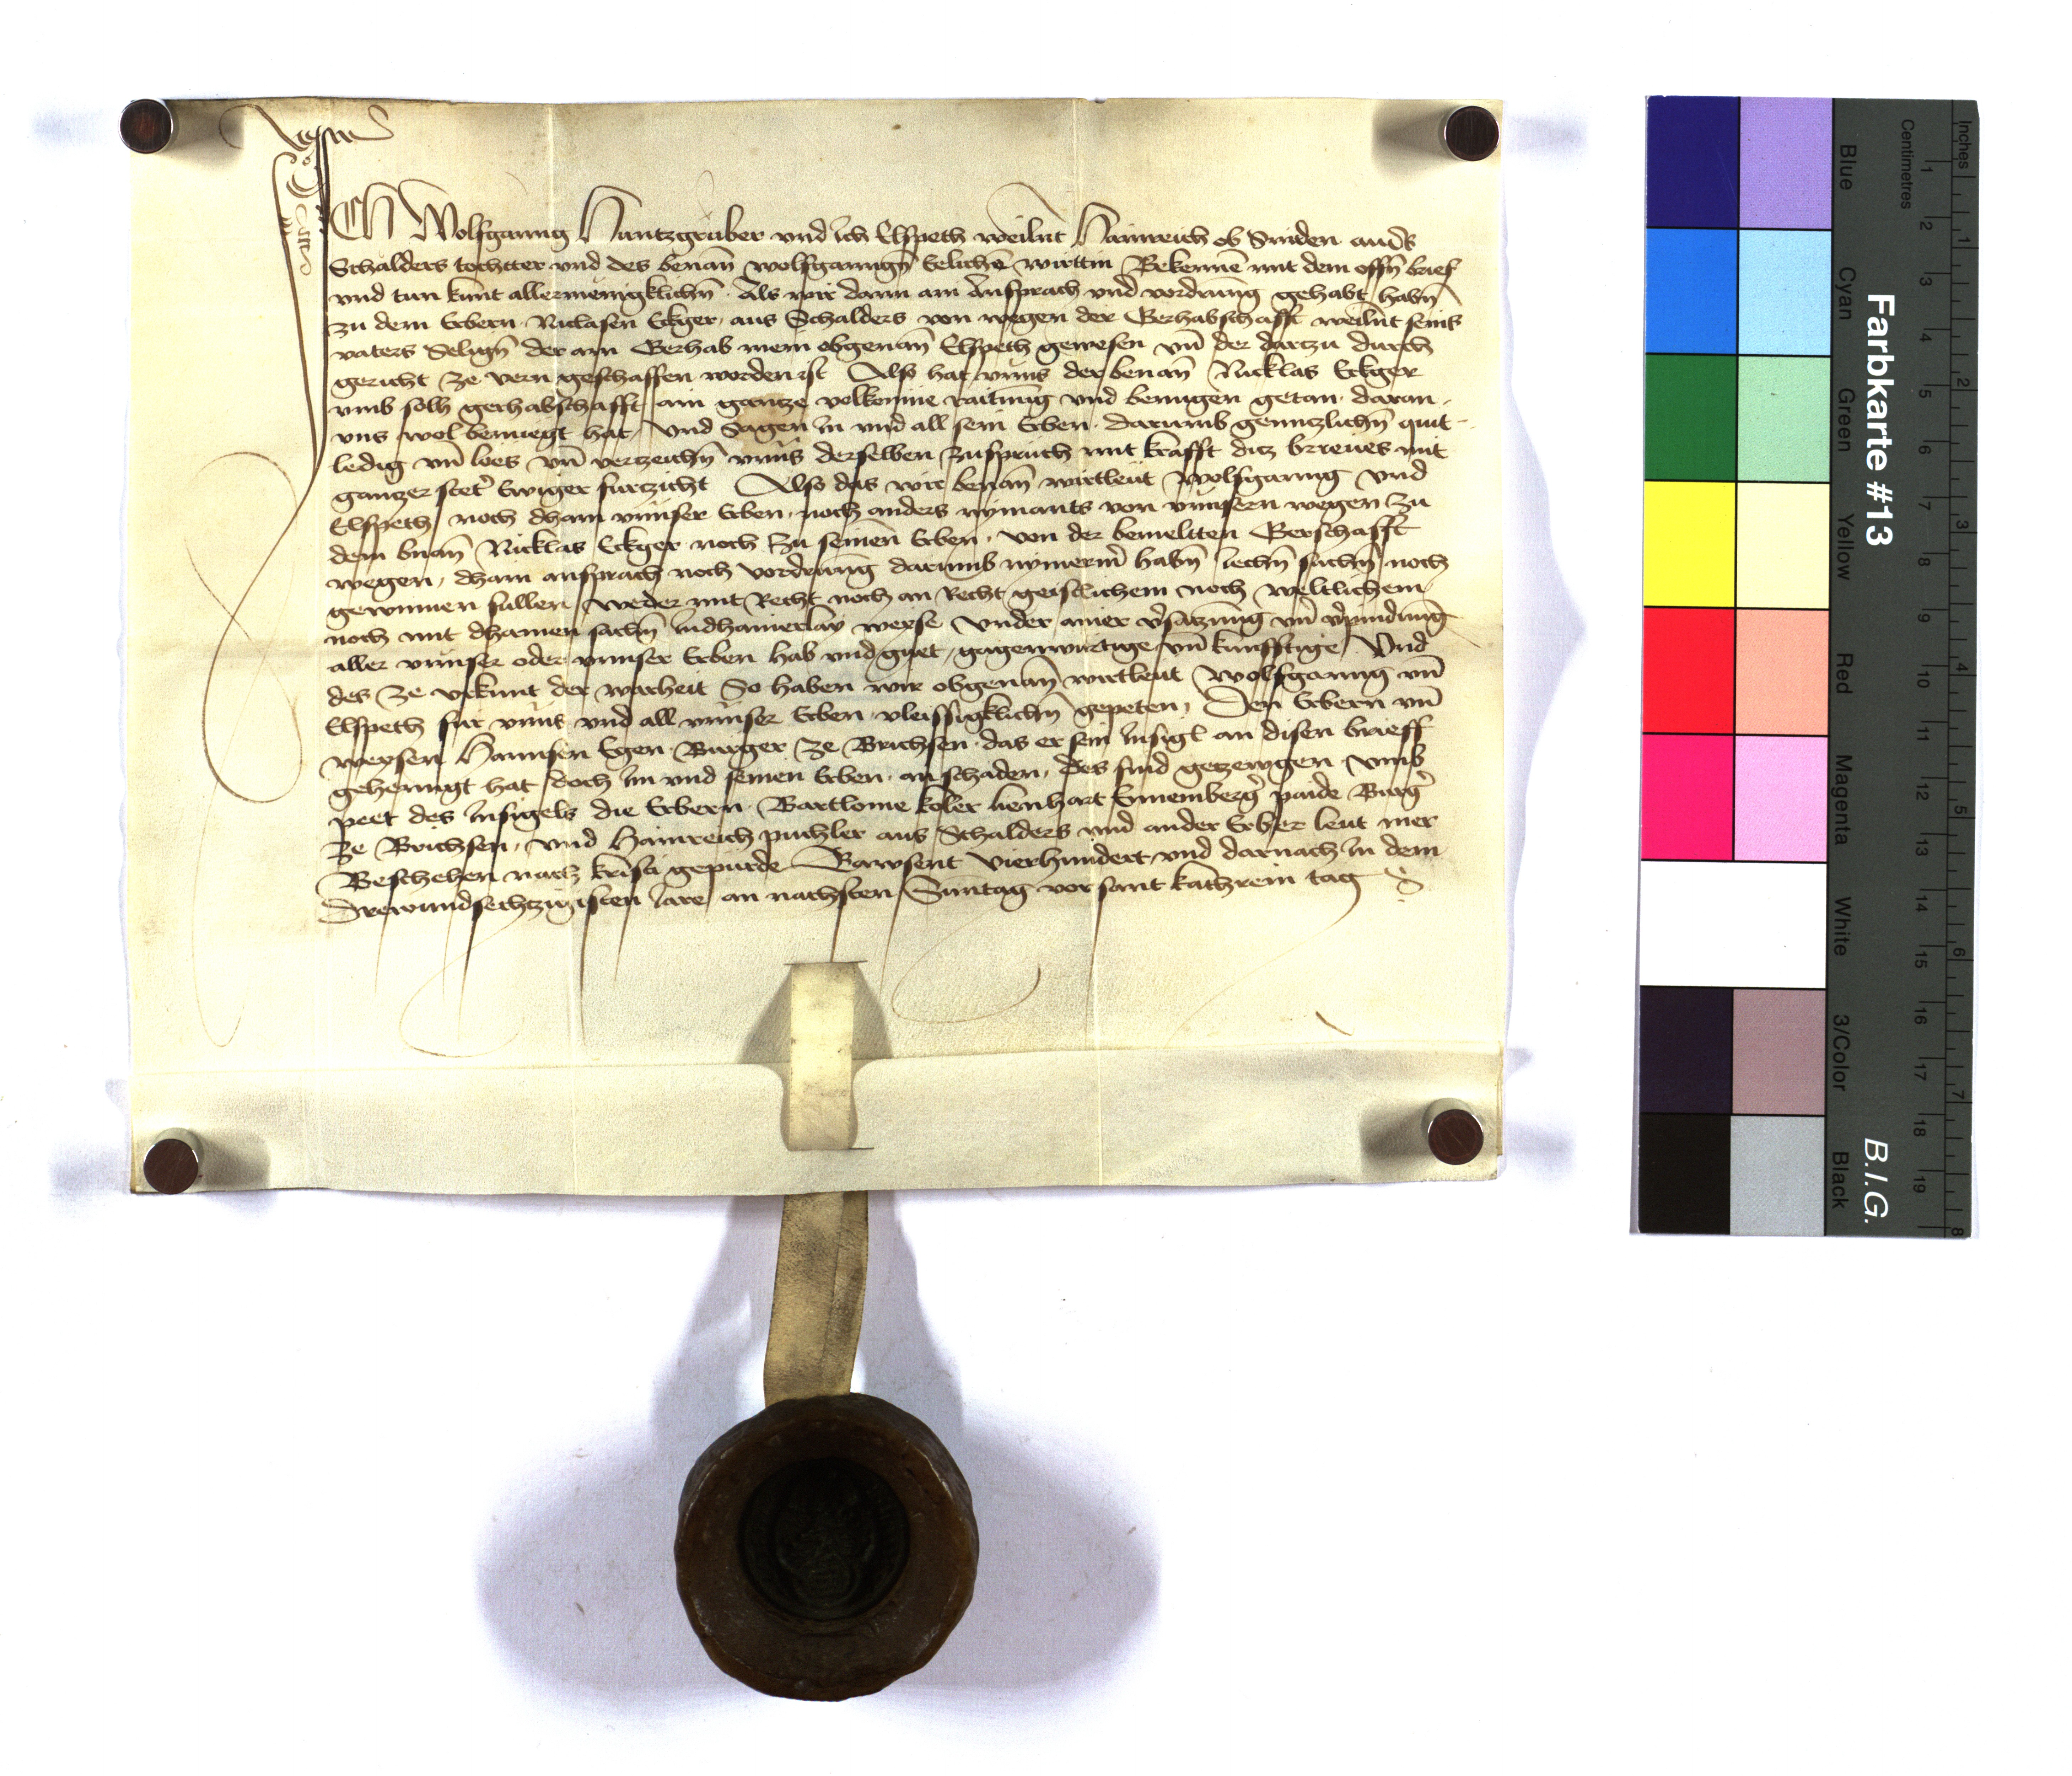 ICH Wolfganng Hantzgruber vnd Ich Elspeth weilnt Hainreich ob Sniden aus
Schalders tochtter vnd des benan̄ wolfganngn̄ Elichē wirttin Bekennē mit dem offn̄ brief
vnd tun kunt allermenigklichn̄ Als wir dann ain Ansprach vnd vordrung gehabt habn̄
zu dem Erbern Niclasen Ekger aus Schalders von wegen der Gerhabschafft weilnt seins
vaters Selign̄ der ain Gerhab mein obgenan̄ Elspeth gewesen vn̄ der dartzu durch
gericht ze vern geschaffen worden ist Also hat vnns der benan̄ Nicklas Ekger
vmb solh gerhabschafft ain gantze volkomne raitung vnd benugen getan daran
vns wol benuegt hat vnd Sagen In vnd all sein Erben darumb genntzlichn̄ quit
ledig vn̄ loes vn̄ vertzeichn̄ vnns derselben zuspruch mit krafft ditz brieues mit
gantzer stet' Ewiger furtzicht Also das wir benan̄ wirtleut Wolfganng vnd
Elspeth noch dhain vnnser Erben noch anders nymants von vnnsern wegen zu
dem bnan̄ Nicklas Ekger noch zu seinen Erben von der bemeltten Gerschafft
wegen dhain ansprach noch vordrung darumb nymerm' habn̄ suchn̄ noch
gewinnen sullen weder mit Recht noch an Recht geistlichem noch weltlichem
noch mit dhainen sachn̄ Indhainerlay weyse vnder ainer v'satzung vn̄ v'pindung
aller vnnser oder vnnser Erben hab vnd guet gagenwurtige vn̄ kunfftige Vnd
des ze vrkunt der warheit So haben wir obgenan̄ wirtleut Wolfganng vn̄
Elspeth fur vnns vnd all vnnser Erben vleissigklichn̄ gepeten Den Erbern vn̄
weysen Hannsen Egen Burger ze Brichsen das er sein Insigl an disen brieff
gehenngt hat doch Im vnd seinen Erben an schaden Des sind getzewgen vmb
peet des Insigels die Erbern Bartlome koler lienhart Ennemberg' paide Burg'
ze Brichsen vnd Hainreich puchler aus Schalders vnd ander Erber leut mer
Beschehen nach kristi gepurde Tawsent vierhundert vnd darnach In dem
Drewundsechtzigisten Jare an nachsten Sunntag vor sant kathrein tag
Farbkarte #13
B.I.G.
Inches
Centimetres
1 2 3 4 5 6 7 8 9 10 11 12 13 14 15 16 17 18 19
1 2 3 4 5 6 7 8
Blue
Cyan
Green
Yellow
Red
Magenta
White
3/Color
Black